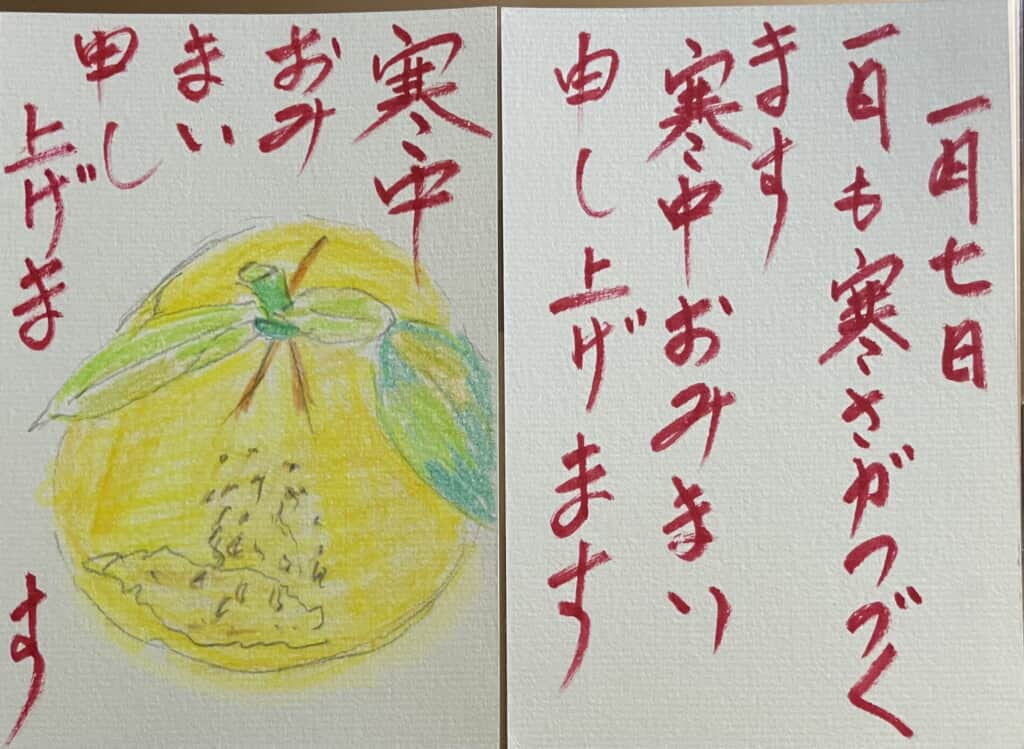 一月七日
一月も寒さがつづく
ます
寒中おみまい
申し上げます
寒中
おみ
まい
申し
上げます